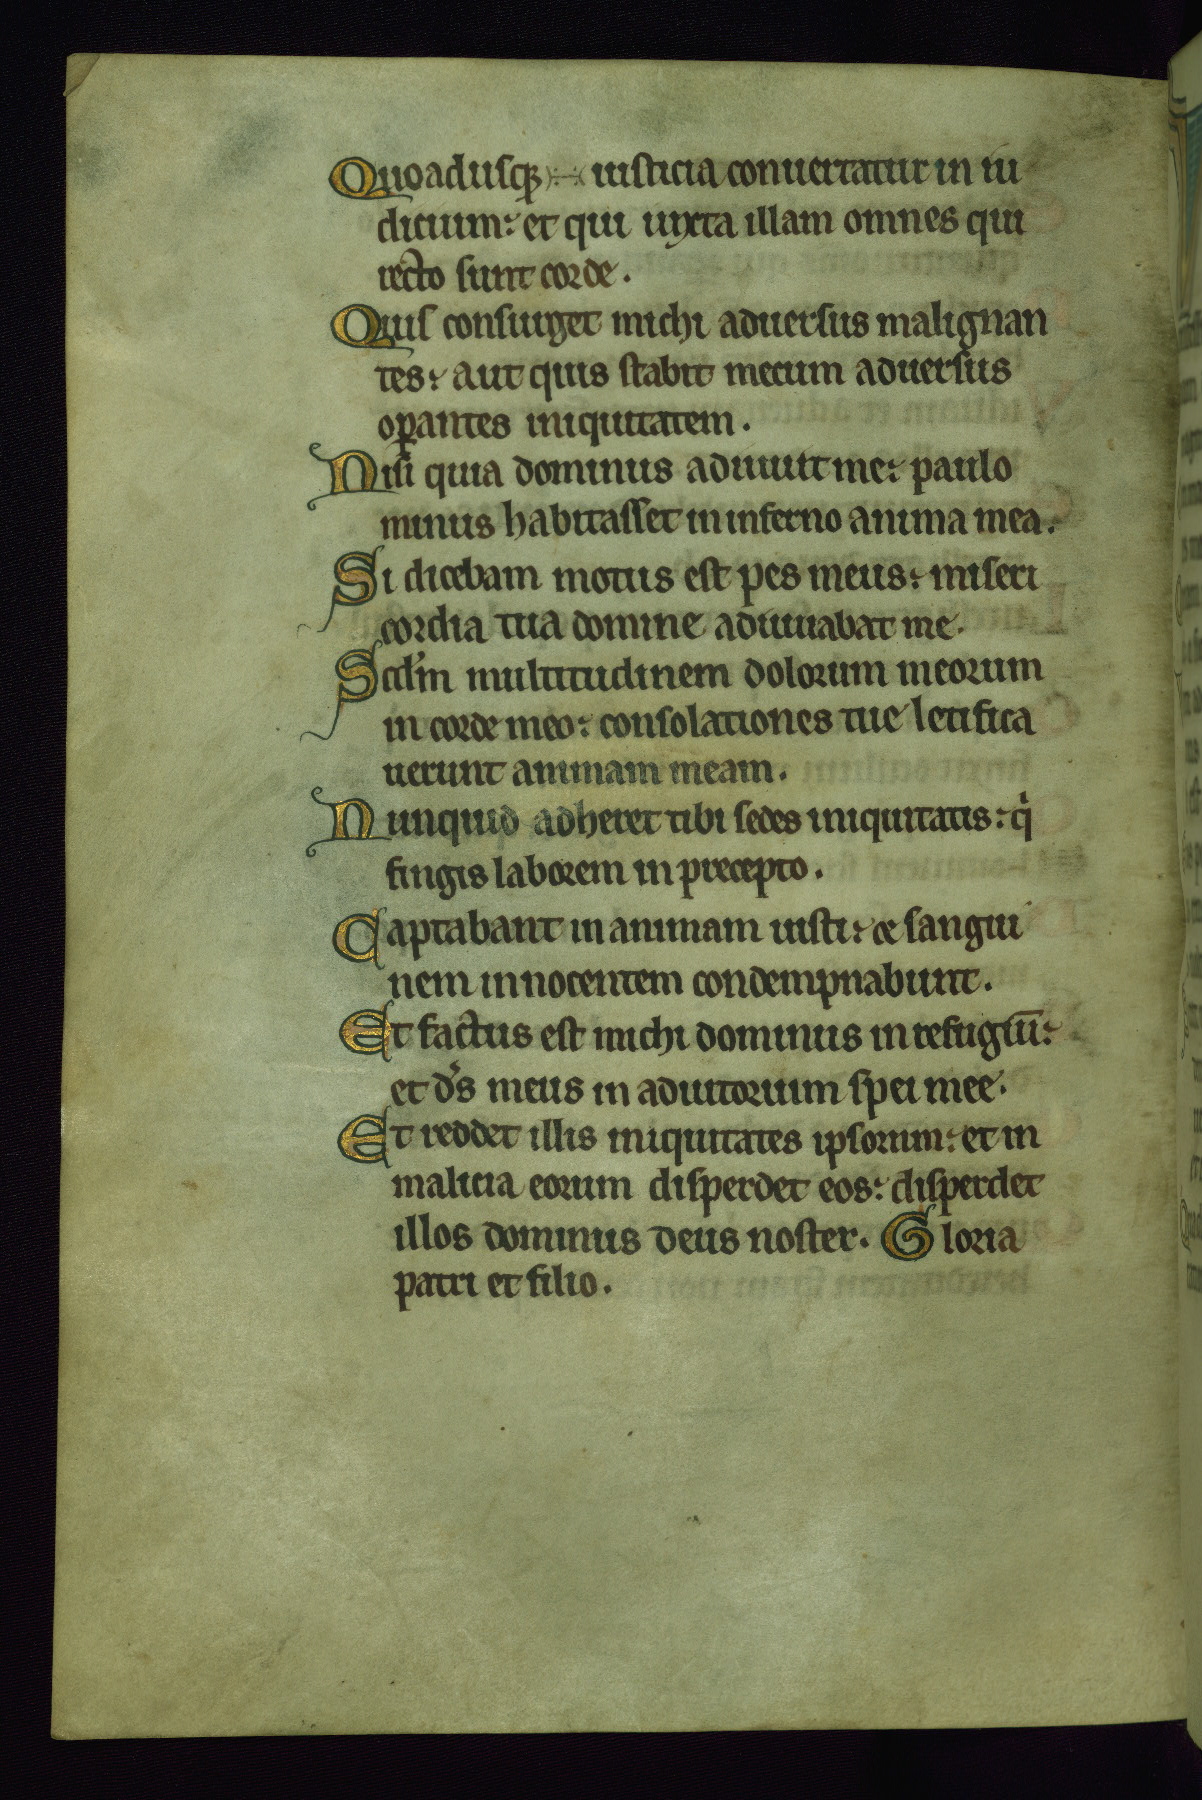 Quoadusqꝫ iusticia conuertatur in iu
dicium: et qui iuxta illam omnes qui
recto sunt corde.
Quis consurget michi aduersus malignan
tes: aut quis stabit mecum aduersus
oꝑantes iniquitatem.
Nisi quia dominus adiuuit me: paulo
minus habitasset in inferno anima mea.
Si dicebam motus est pes meus: miseri
cordia tua domine adiuuabat me.
Scdm̄ multitudinem dolorum meorum
in corde meo: consolationes tue letifica
uerunt animam meam.
Nunquid adheret tibi sedes iniquitatis: qͥ
fingis laborem in precepto.
Captabant in animam iusti: & sangui
nem innocentem condempnabunt.
Et factus est michi dominus in refugiū:
et d̄s meus in adiutorium spei mee.
Et reddet illis iniquitates ipsorum: et in
malicia eorum disperdet eos: disperdet
illos dominus deus noster. Gloria
patri et filio.